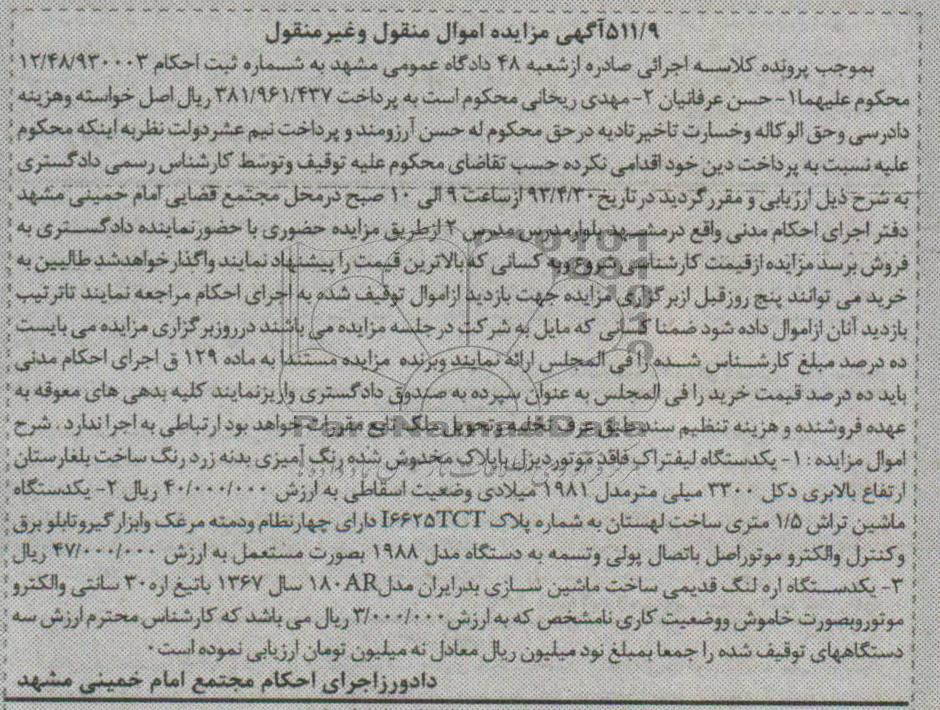 ۵۱۱/۹آگهی مزایده اموال منقول وغیرمنقول
بموجب پرونده کلاسه اجرائی صادره ازشعبه ۴۸ دادگاه عمومی مشهد به شماره ثبت احکام ۱۲/۴۸/۹۳۰۰۰۳
محکوم علیهما۱- حسن عرفانیان ۲-مهدی ریحانی محکوم است به پرداخت ۳۸۱/۹۶۱/۴۳۷ ریال اصل خواسته وهزینه
دادرسی وحق الوکاله وخسارت تاخیرتادیه درحق محکوم له حسن آرزومند و پرداخت نیم عشردولت نظربه اینکه محکوم
علیه نسبت به پرداخت دین خود اقدامی نکرده حسب تقاضای محکوم علیه توقیف وتوسط کارشناس رسمی دادگستری
به شرح ذیل ارزیابی و مقررگردید درتاریخ ۹۳/۴/۳۰ ازساعت ۹ الی ۱۰ صبح درمحل مجتمع قضایی امام خمینی مشهد
دفتر اجرای احکام مدنی واقع درمشهد بلوارمدرس مدرس ۲ ازطریق مزایده حضوری با حضورنماینده دادگستری به
فروش برسد مزایده ازقیمت کارشناسی شروع وبه کسانی که بالاترین قیمت را پیشنهاد نمایند واگذارخواهدشد طالبین به
خرید می توانند پنج روزقبل ازبرگزاری مزایده جهت بازدید ازاموال توقیف شده به اجرای احکام مراجعه نمایند تاترتیب
بازدید آنان ازاموال داده شود ضمنا کسانی که مایل به شرکت درجلسه مزایده می باشند درروزبرگزاری مزایده می بایست
ده درصد مبلغ کارشناس شده را فی المجلس ارائه نمایند وبرنده مزایده مستندا به ماده ۱۲۹ ق اجرای احکام مدنی
باید ده درصد قیمت خرید را فی المجلس به عنوان سپرده به صندوق دادگستری واریزنمایند کلیه بدهی های معوقه به
عهده فروشنده و هزینه تنظیم سند طبق عرف تخلیه وتحویل ملک تابع مقررات خواهد بود ارتباطی به اجرا ندارد . شرح
اموال مزایده : ۱- یکدستگاه لیفتراک فاقد موتوردیزل باپلاک مخدوش شده رنگ آمیزی بدنه زرد رنگ ساخت بلغارستان
ارتفاع بالابری دکل ۳۳۰۰ میلی مترمدل ۱۹۸۱ میلادی وضعیت اسقاطی به ارزش ۴۰/۰۰۰/۰۰۰ ریال ۲- یکدستگاه
ماشین تراش ۱/۵ متری ساخت لهستان به شماره پلاک I۶۶۲۵TCT دارای چهارنظام ودمته مرغک وابزارگیروتابلو برق
وکنترل والکترو موتوراصل باتصال پولی وتسمه به دستگاه مدل ۱۹۸۸ بصورت مستعمل به ارزش ۴۷/۰۰۰/۰۰۰ ریال
۳- یکدستگاه اره لنگ قدیمی ساخت ماشین سازی بدرایران مدل۱۸۰AR سال ۱۳۶۷ باتیغ اره ۳۰ سانتی والکترو
موتوروبصورت خاموش ووضعیت کاری نامشخص که به ارزش۳/۰۰۰/۰۰۰ ریال می باشد که کارشناس محترم ارزش سه
دستگاههای توقیف شده را جمعا بمبلغ نود میلیون ریال معادل نه میلیون تومان ارزیابی نموده است۰
دادورزاجرای احکام مجتمع امام خمینی مشهد
ParsNamadData